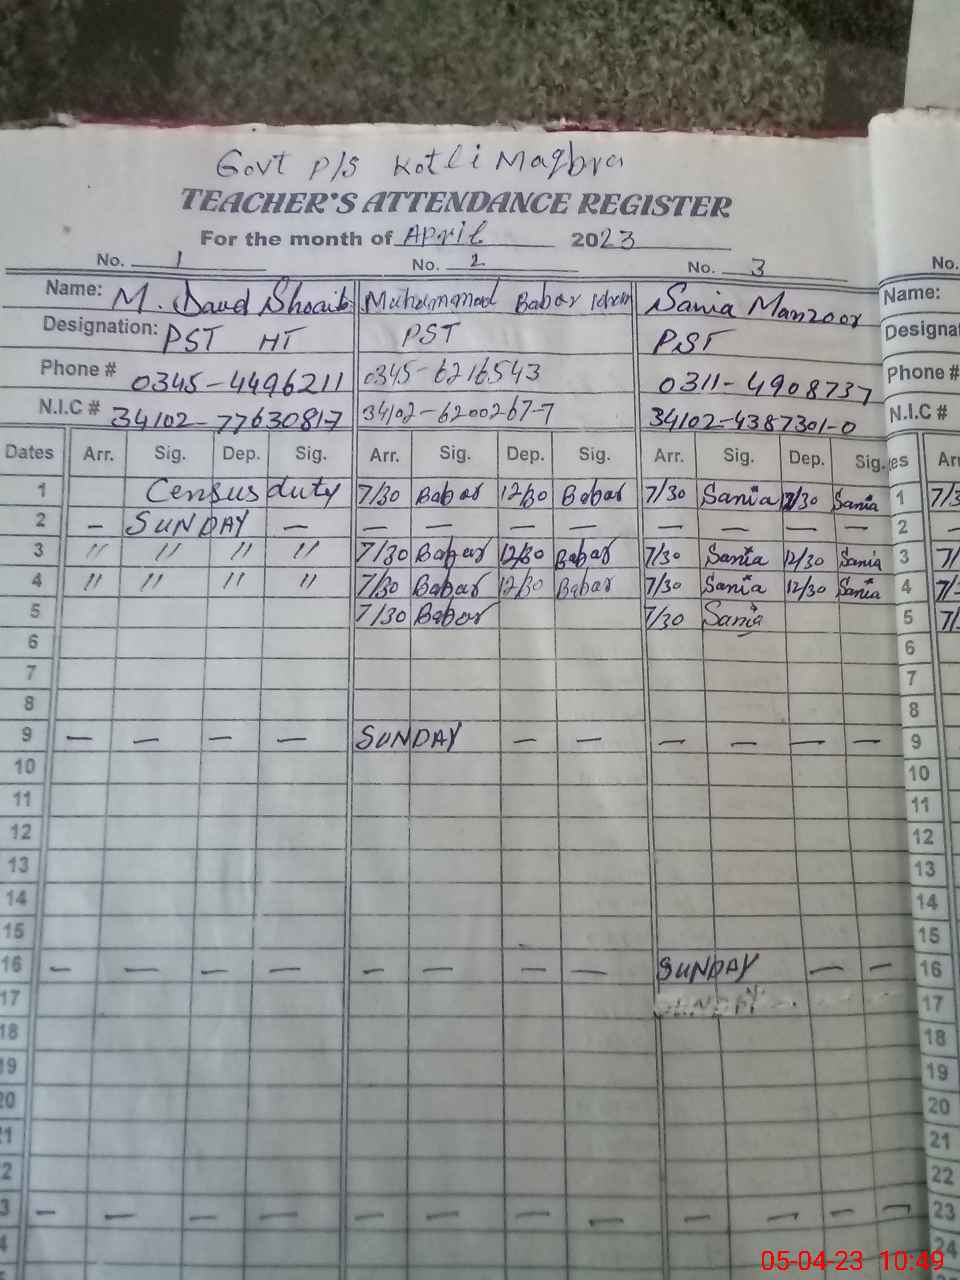 Govt P/S Kotli Maqbra
TEACHER'S ATTENDANCE REGISTER
For the month of April 2023
No. 1 No. 2 No. 3 No.
Name: M. Daud Shoaib Muhammad Babar Sania Manzoor Name:
Designation: PST HT PST PST Designa
Phone # 0345-4496211 0345-6216543 0311-4908737 Phone #
N.I.C # 34102-7763081-7 34102-6200267-7 34102-4387301-0 N.I.C #
Dates Arr. Sig. Dep. Sig. Arr. Sig. Dep. Sig. Arr. Sig. Dep. Sig. es Arr
1 Census duty 7/30 Babar 12/30 Babar 7/30 Sania 12/30 Sania 1 7/3
2 — SUNDAY — — — — — — — — — 2 —
3 " " " " 7/30 Babar 12/30 Babar 7/30 Sania 12/30 Sania 3 7/
4 " " " " 7/30 Babar 12/30 Babar 7/30 Sania 12/30 Sania 4 7/
5 7/30 Babar 7/30 Sania 5 7/
6 6
7 7
8 8
9 — — — — SUNDAY — — — — — — 9
10 10
11 11
12 12
13 13
14 14
15 15
16 — — — — — — — — SUNDAY — — 16
17 SUNDAY — 17
18 18
19 19
20 20
21 21
22 22
3 — — — — — — — — — — — — 23
4 24
05-04-23 10:49